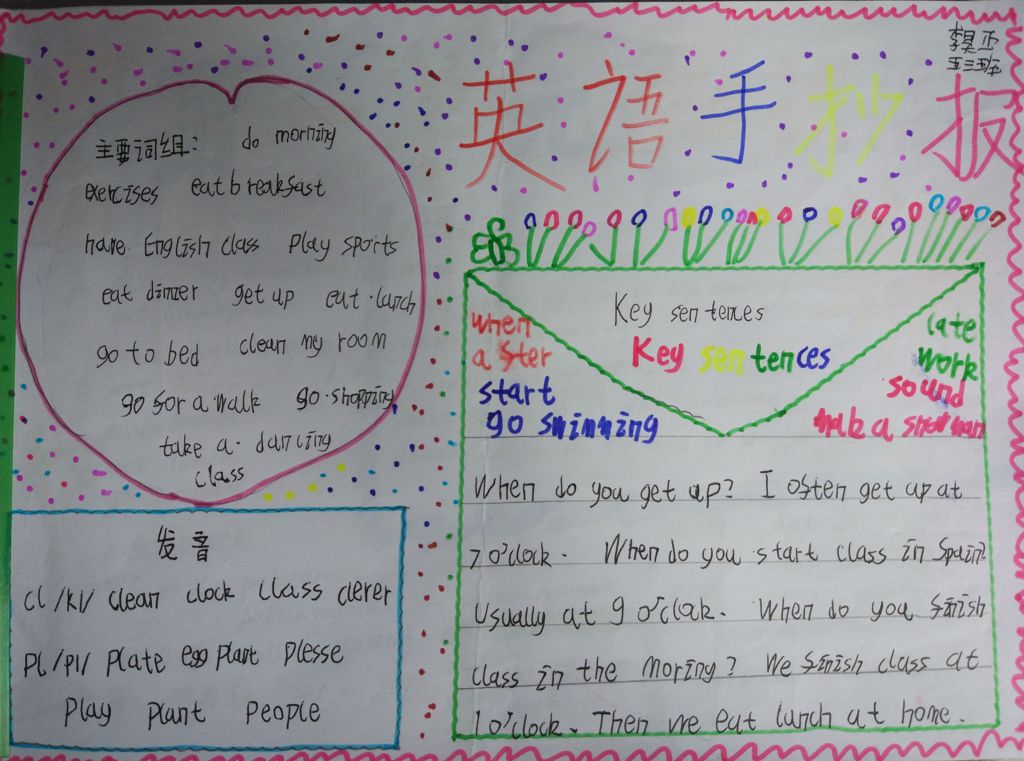 五三班
英语手抄报
主要词组: do morning
exercises eat breakfast
have English class play sports
eat dinner get up eat lunch
go to bed clean my room
go for a walk go shopping
take a dancing
class
发音
cl /kl/ clean clock class clerer
pl /pl/ plate eggplant plesse
play plant people
Key sentences
Key sentences
when
after
start
go swimming
late
work
sound
make a snowman
When do you get up? I often get up at
7 o'clock. When do you start class in Spain?
Usually at 9 o'clock. When do you finish
class in the moring? We finish class at
1 o'clock. Then we eat lunch at home.